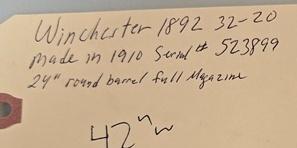 Winchester 1892 32-20
made in 1910 Serial # 523899
24" round barrel full Magazine
42"